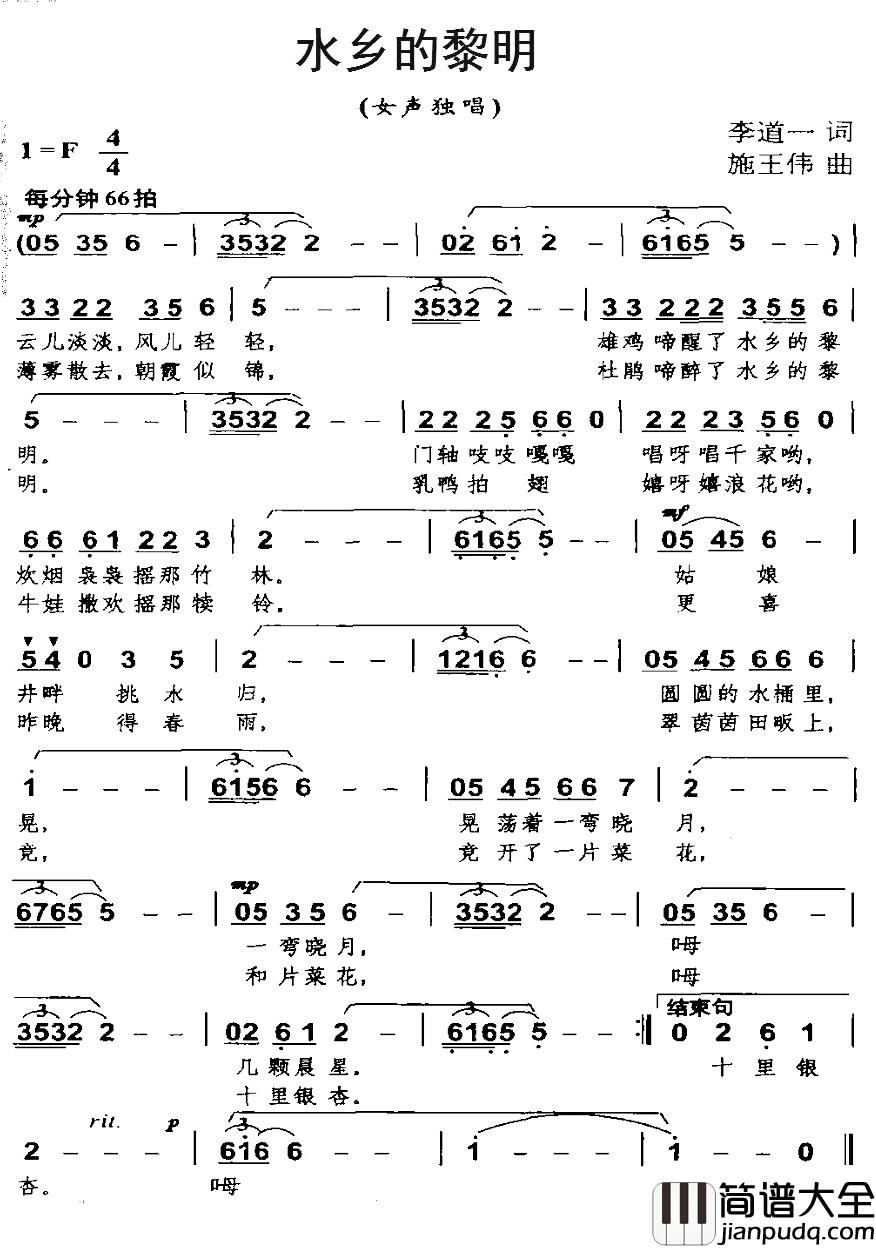 水乡的黎明
(女声独唱)
1=F 4/4
李道一 词
施王伟 曲
每分钟66拍
mp 3 3
(05 35 6 - | 3532 2 - - | 02 61 2 - | 6165 5 - - ) |
3
33 22 35 6 | 5 - - - | 3532 2 - - | 33 222 355 6 |
云儿淡淡,风儿轻 轻, 雄鸡啼醒了水乡的黎
薄雾散去,朝霞似 锦, 杜鹃啼醉了水乡的黎
3
5 - - - | 3532 2 - - | 22 25 66 0 | 22 23 56 0 |
明。 门轴吱吱嘎嘎 唱呀唱千家哟,
明。 乳鸭拍 翅 嬉呀嬉浪花哟,
3 mf
66 61 22 3 | 2 - - - | 6165 5 - - | 05 45 6 - |
炊烟袅袅摇那竹 林。 姑 娘
牛娃撒欢摇那犊 铃。 更 喜
3
54 0 3 5 | 2 - - - | 1216 6 - - | 05 45 66 6 |
井畔 挑水 归, 圆圆的水桶里,
昨晚 得春 雨, 翠茵茵田畈上,
3
1 - - - | 6156 6 - - | 05 45 66 7 | 2 - - - |
晃, 晃荡着一弯晓 月,
竞, 竞开了一片菜 花,
3 mp 3
6765 5 - - | 05 35 6 - | 3532 2 - - | 05 35 6 - |
一弯晓月, 呣
和片菜花, 呣
3 3 结束句
3532 2 - - | 02 61 2 - | 6165 5 - - :‖ 0 2 6 1 |
几颗晨星。 十里银
十里银杏。
rit. p 3
2 - - - | 616 6 - - | 1 - - - | 1 - - 0 ‖
杏。 呣
简谱大全
jianpudq.com